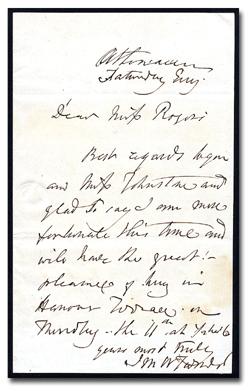 Athenaeum
Saturday Evg.
Dear Miss Rogers
Best regards to you
and Miss Johnstone and
glad to say I am more
fortunate this time and
will have the great
pleasure of being in
Hanover Terrace on
Thursday - the 11th at
yours most truly
J M W Turner